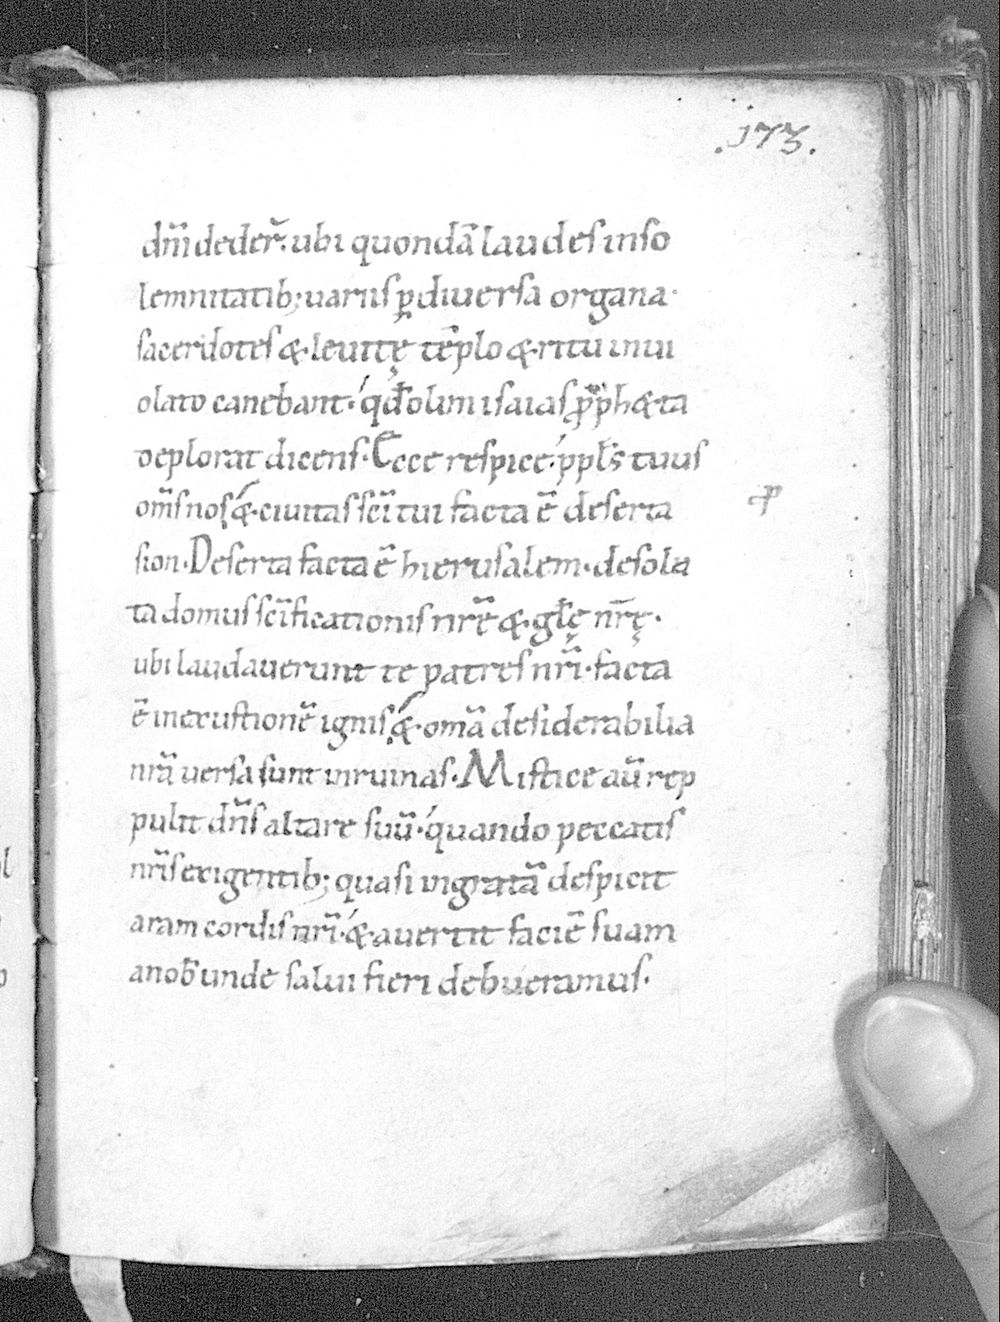 .173.
dñi deder̃. ubi quondã laudes inso
lemnitatib; uariis ꝑ diuersa organa·
sacerdotes &· leuitę tẽplo &· ritu inui
olato canebant· qđ olim isaias ꝓph&a
deplorat dicens· Ecce respice· ppl̃s tuus
om̃s nos &· ciuitas sc̃i tui facta ẽ deserta
sion· Deserta facta ẽ hierusalem· desola
ta domus sc̃ificationis nrẽ &· gl̃ę nr̃ę·
ubi laudauerunt te patres nr̃i· facta
ẽ inexustionẽ ignis &· om̃a desiderabilia
nrã uersa sunt inruinas· Mistice aũ rep
pulit dñs altare suũ· quando peccatis
nr̃is exigentib; quasi ingratã despicit
aram cordis nr̃i· &· auertit faciẽ suam
anob̃ unde salui fieri debueramus·